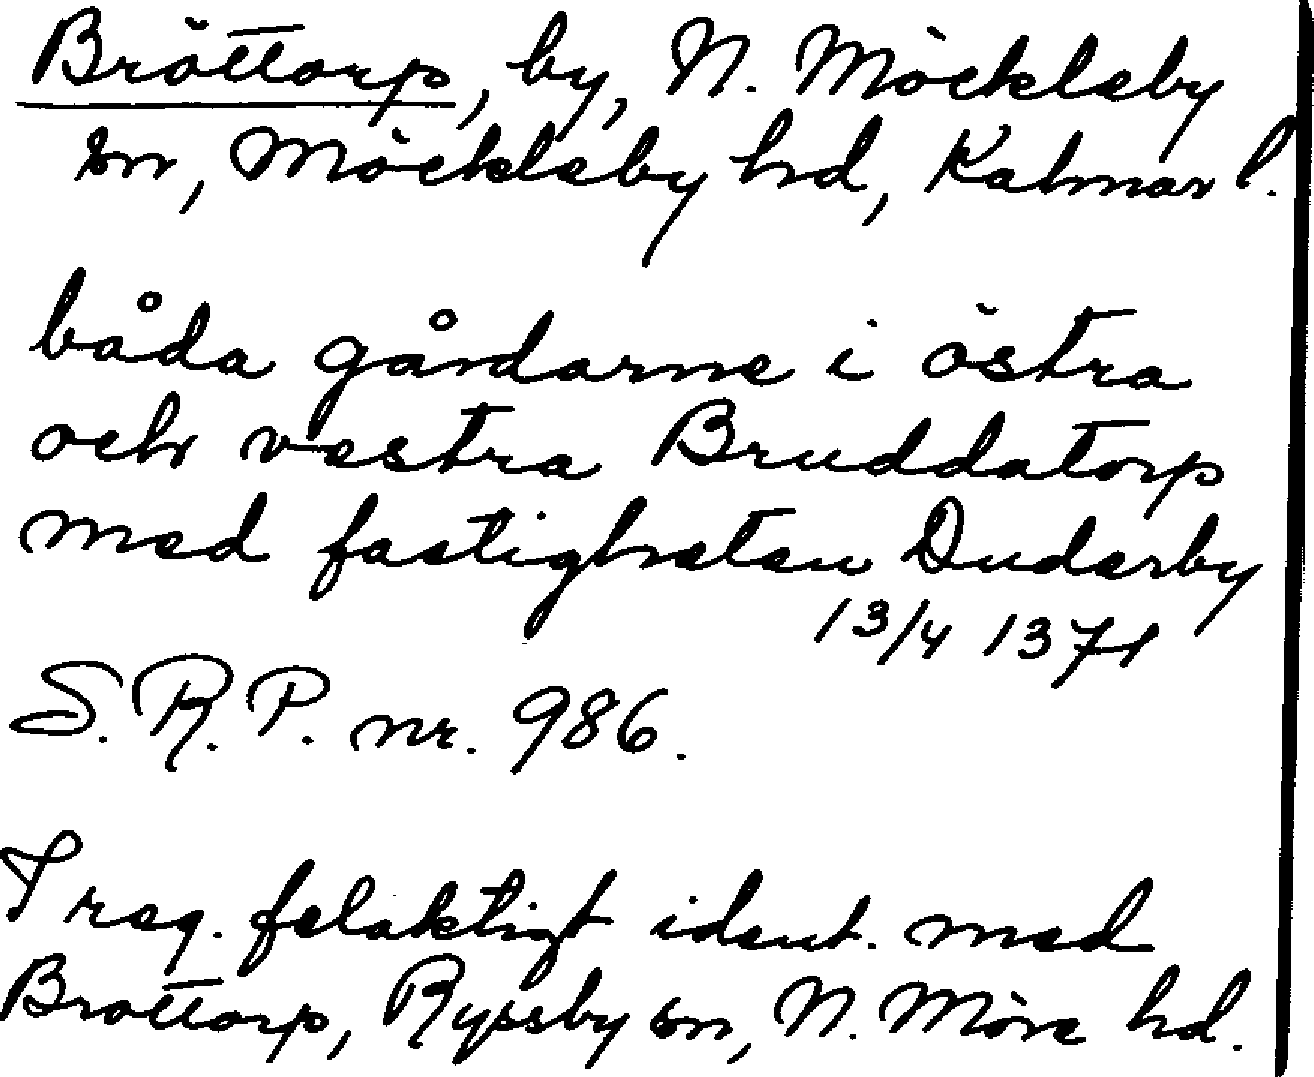 Bröttorp, by, N. Möckleby
sn, Möckleby hd, Kalmar l.
båda gårdarne i östra
och vestra Bruddatorp
med fastigheten Duderby
13/4 1371
S.R.P. nr. 986.
I reg. felaktigt ident. med
Brottorp, Ryssby sn, N. Möre hd.